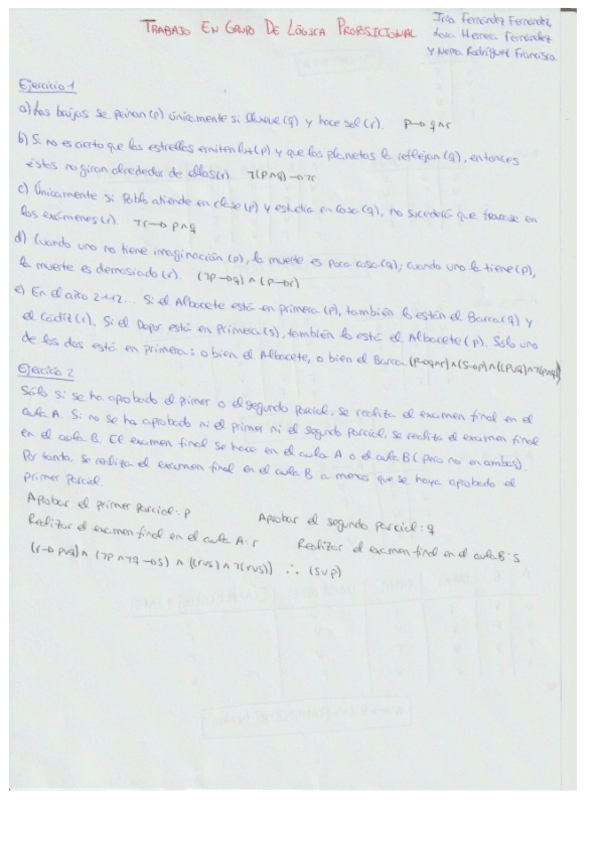 TRABAJO EN GRUPO DE LÓGICA PROPOSICIONAL
Iria Fernández Fernández,
Herrera Fernández
y Nerea Rodríguez Francisco
Ejercicio 1
a) Las brujas se peinan (p) únicamente si llueve (q) y hace sol (r). p→q∧r
b) Si no es cierto que las estrellas emiten luz (p) y que los planetas la reflejan (q), entonces
éstos no giran alrededor de ellas (r). ¬(p∧q)→¬r
c) Únicamente si Pablo atiende en clase (p) y estudia en casa (q), no sucederá que fracase en
los exámenes (r). ¬r→p∧q
d) Cuando uno no tiene imaginación (p), la muerte es poca cosa (q); cuando uno la tiene (p),
la muerte es demasiado (r). (¬p→q)∧(p→r)
e) En el año ... Si el Albacete está en primera (p), también lo están el Barca (q) y
el Cádiz (r). Si el Depor está en primera (s), también lo está el Albacete (p). Solo uno
de los dos está en primera: o bien el Albacete, o bien el Barca. (p→q∧r)∧(s→p)∧((p∨q)∧¬(p∧q))
Ejercicio 2
Sólo si se ha aprobado el primer o el segundo parcial, se realiza el examen final en el
aula A. Si no se ha aprobado ni el primer ni el segundo parcial, se realiza el examen final
en el aula B. El examen final se hace en el aula A o el aula B (pero no en ambas).
Por tanto, se realiza el examen final en el aula B a menos que se haya aprobado el
primer parcial.
Aprobar el primer parcial: p Aprobar el segundo parcial: q
Realizar el examen final en el aula A: r Realizar el examen final en el aula B: s
(r→p∨q)∧(¬p∧¬q→s)∧((r∨s)∧¬(r∨s)) ∴ (s∨p)